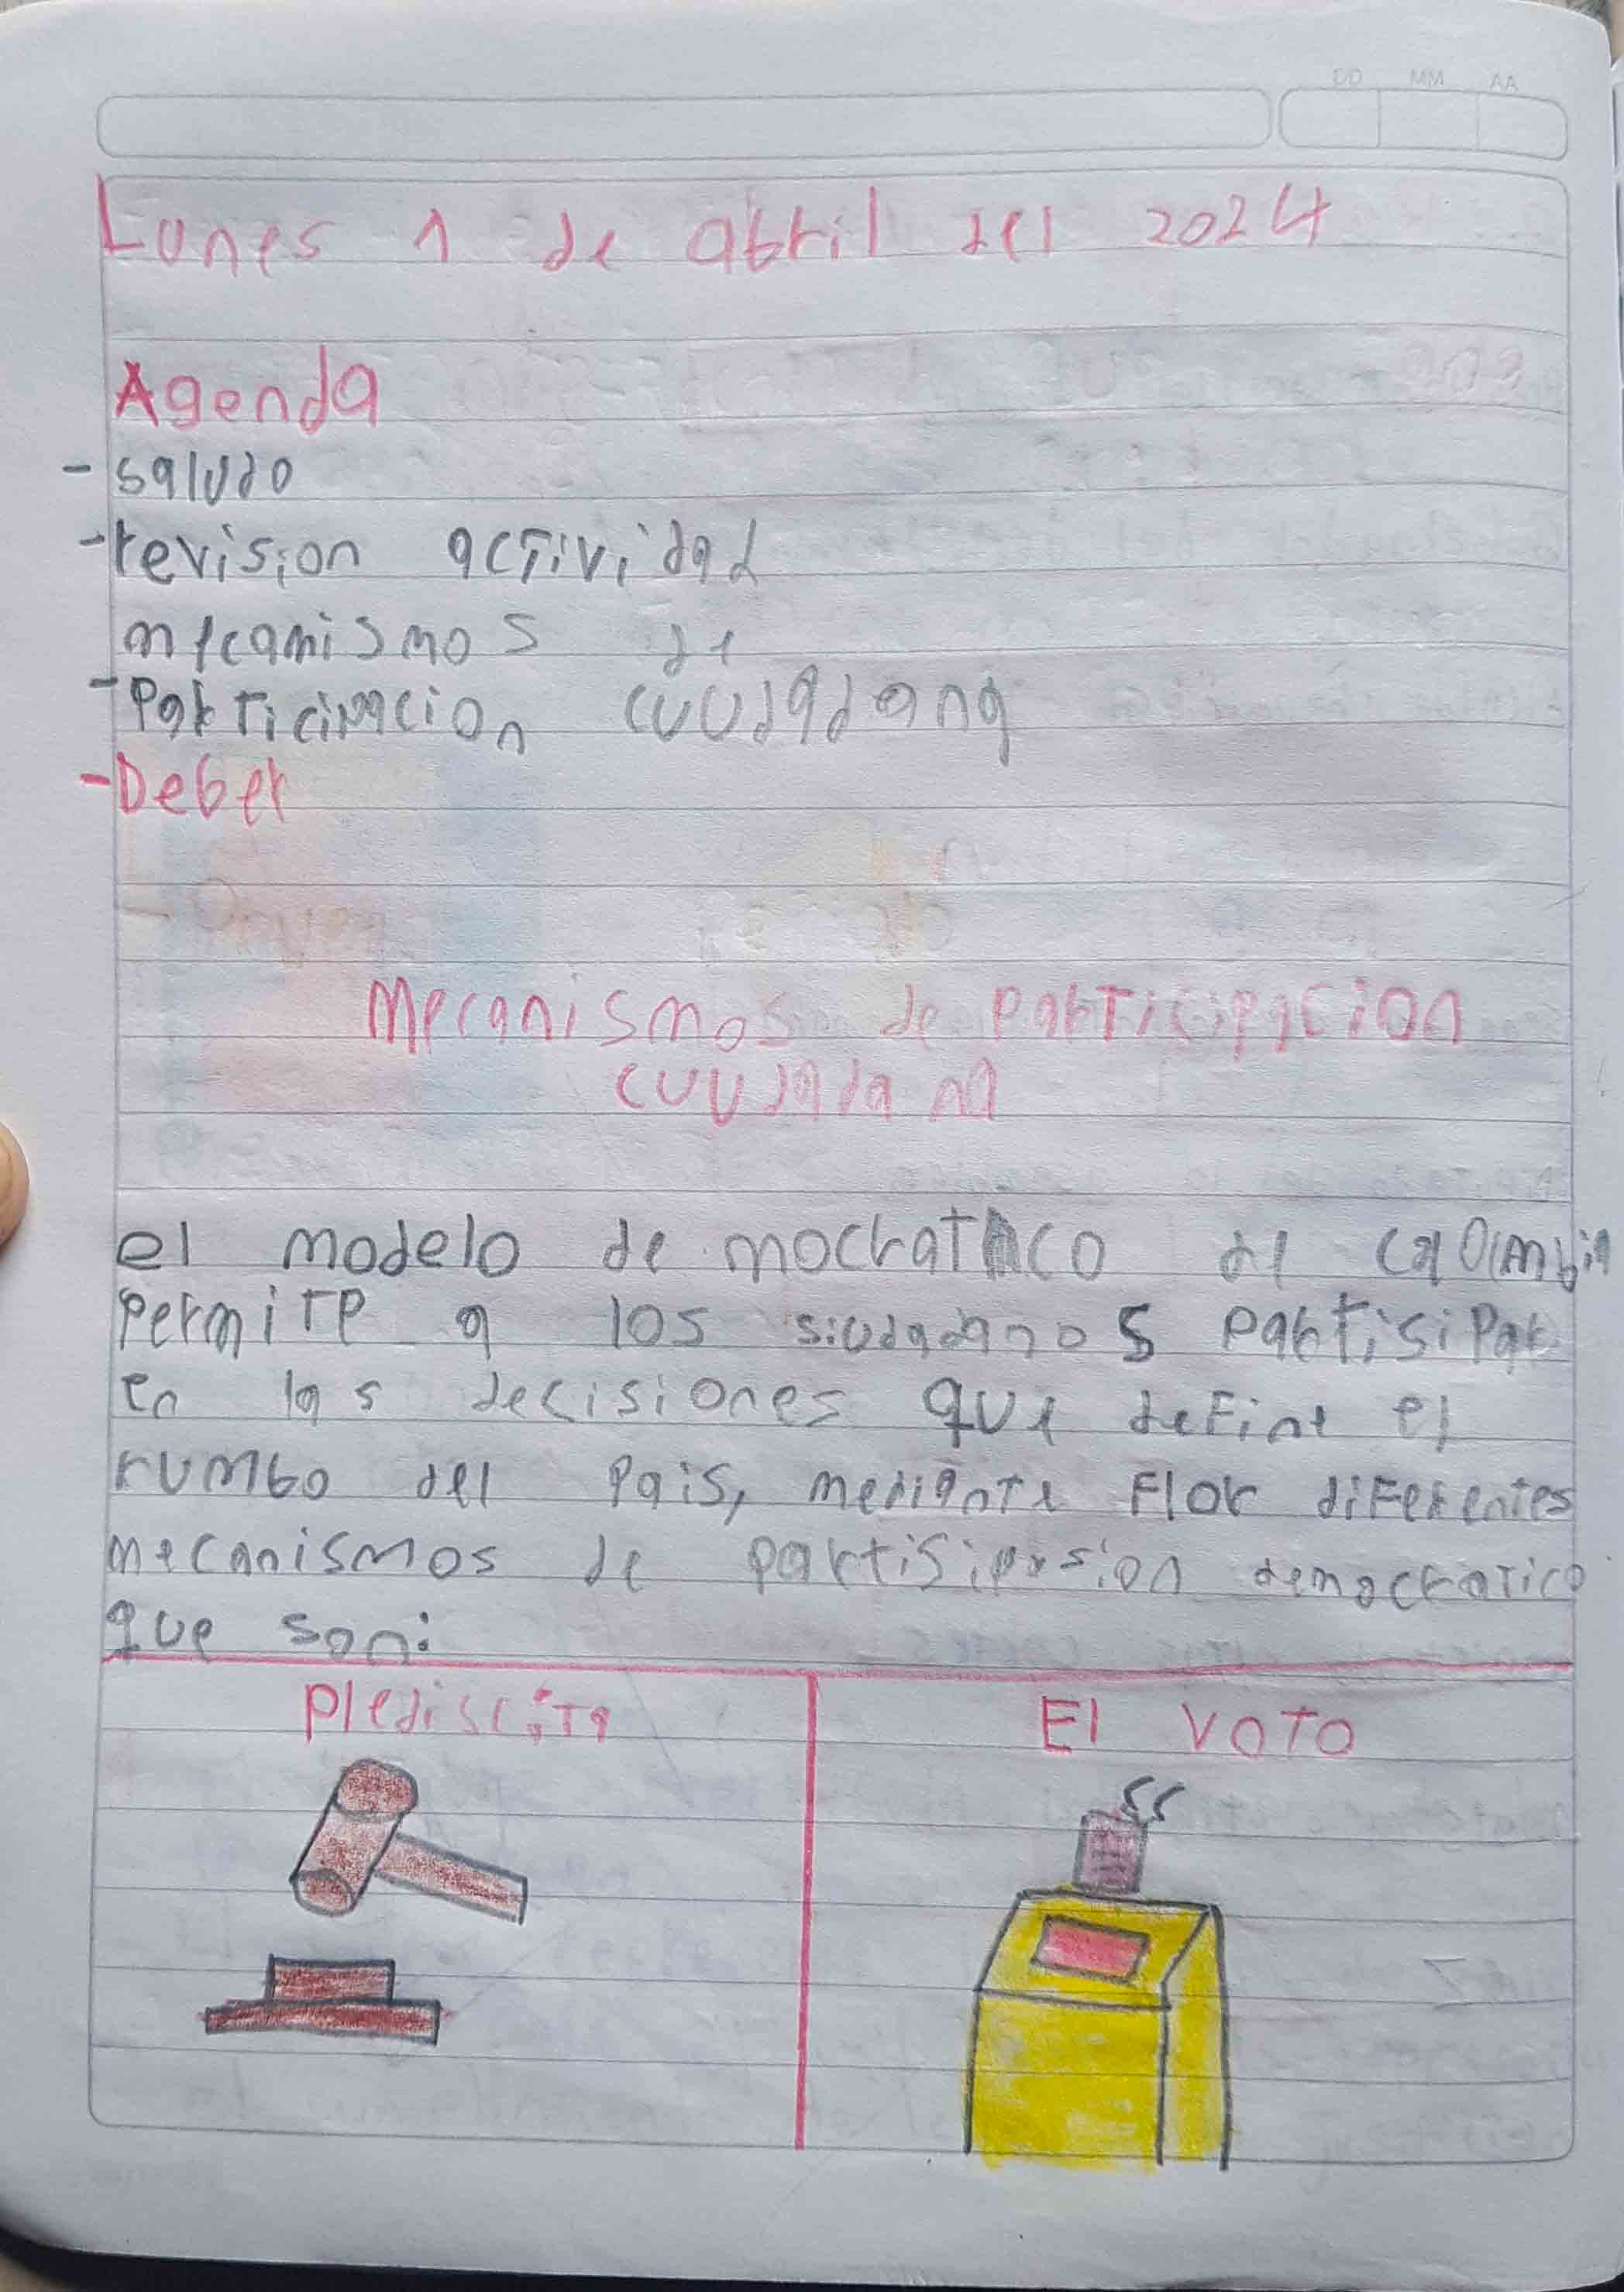 DD MM AA
Lunes 1 de abril del 2024
Agenda
- saludo
- revision actividad
mecanismos de
- Participacion cuudadana
- Deber
Mecanismos de participacion
cuudadana
el modelo de mocratico de
permite a los siudadanos partisipar
en las decisiones que define el
rumbo del pais, mediante Flor diferentes
mecanismos de partisipasion democratico
que son:
Plediscita
El voto